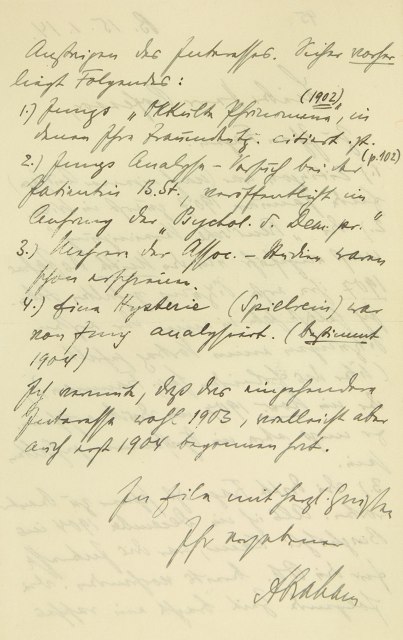 Ansteigen des Interesses. Sicher vorher
liegt Folgendes:
(1902)
1.) Jungs „Okkulte Phänomene", in
denen Ihre Traumdeutg. citiert ist.
(p.102)
2.) Jungs Analyse-Versuch bei der
Patientin B.St., veröffentlicht im
Anfang der „Psychol. d. Dem. pr."
3.) Mehrere der Assoc.-Studien waren
schon erschienen.
4.) Eine Hysterie (Spielrein) war
von Jung analysiert. (bestimmt
1904)
Ich vermute, daß das eingehendere
Interesse wohl 1903, vielleicht aber
auch erst 1904 begonnen hat.
In Eile mit herzl. Grüßen
Ihr ergebener
Abraham